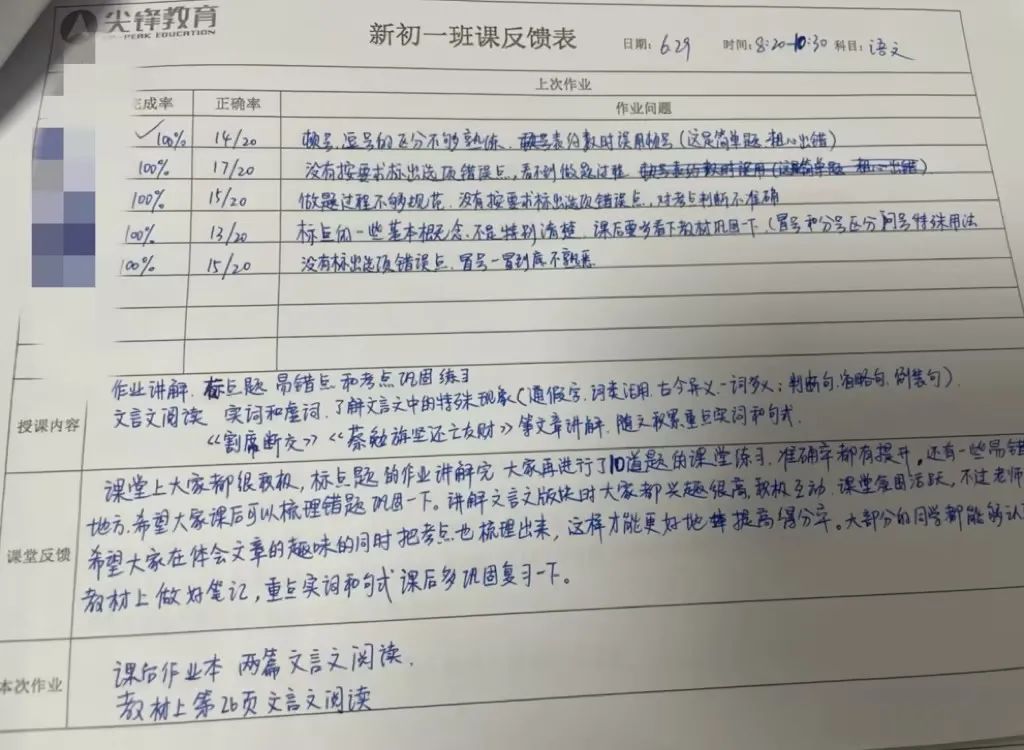 尖锋教育
PEAK EDUCATION
新初一班课反馈表 日期: 6.29 时间: 8:20-10:30 科目: 语文
上次作业
完成率 正确率 作业问题
100% 14/20 顿号、逗号的区分不够熟练、表约数时误用顿号(这是简单题,粗心出错)
100% 17/20 没有按要求标出选项错误点,看不到做题过程
100% 15/20 做题过程不够规范,没有按要求标出选项错误点,对考点判断不准确
100% 13/20 标点的一些基本概念不是特别清楚,课后要多看下教材巩固一下,(冒号和分号区分 问号特殊用法
100% 15/20 没有标出选项错误点,冒号一冒到底不熟悉
授课内容
作业讲解、标点题 易错点和考点巩固练习
文言文阅读 实词和虚词,了解文言文中的特殊现象(通假字、词类活用、古今异义、一词多义;判断句、省略句、倒装句).
《割席断交》《蔡勉旃坚还亡友财》等文章讲解,随文积累重点实词和句式.
课堂反馈
课堂上大家都很积极,标点题的作业讲解完 大家再进行了10道题的课堂练习,准确率都有提升。还有一些易错
地方,希望大家课后可以梳理错题 巩固一下。讲解文言文版块时大家都兴趣很高,积极互动,课堂氛围活跃,不过老师
希望大家在体会文章的趣味的同时把考点也梳理出来,这样才能更好地提高得分率。大部分的同学都能够认
教材上做好笔记,重点实词和句式课后多巩固复习一下。
本次作业
课后作业本 两篇文言文阅读.
教材上第26页文言文阅读